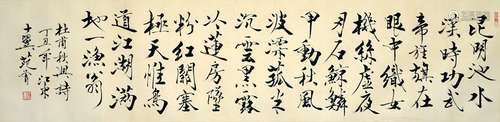 昆明池水
漢時功武
帝旌旗在
眼中織女
機絲虛夜
月石鯨鱗
甲動秋風
波漂菰米
沉雲黑露
冷蓮房墜
粉紅關塞
極天惟鳥
道江湖滿
地一漁翁
杜甫秋興詩
丁丑年江東